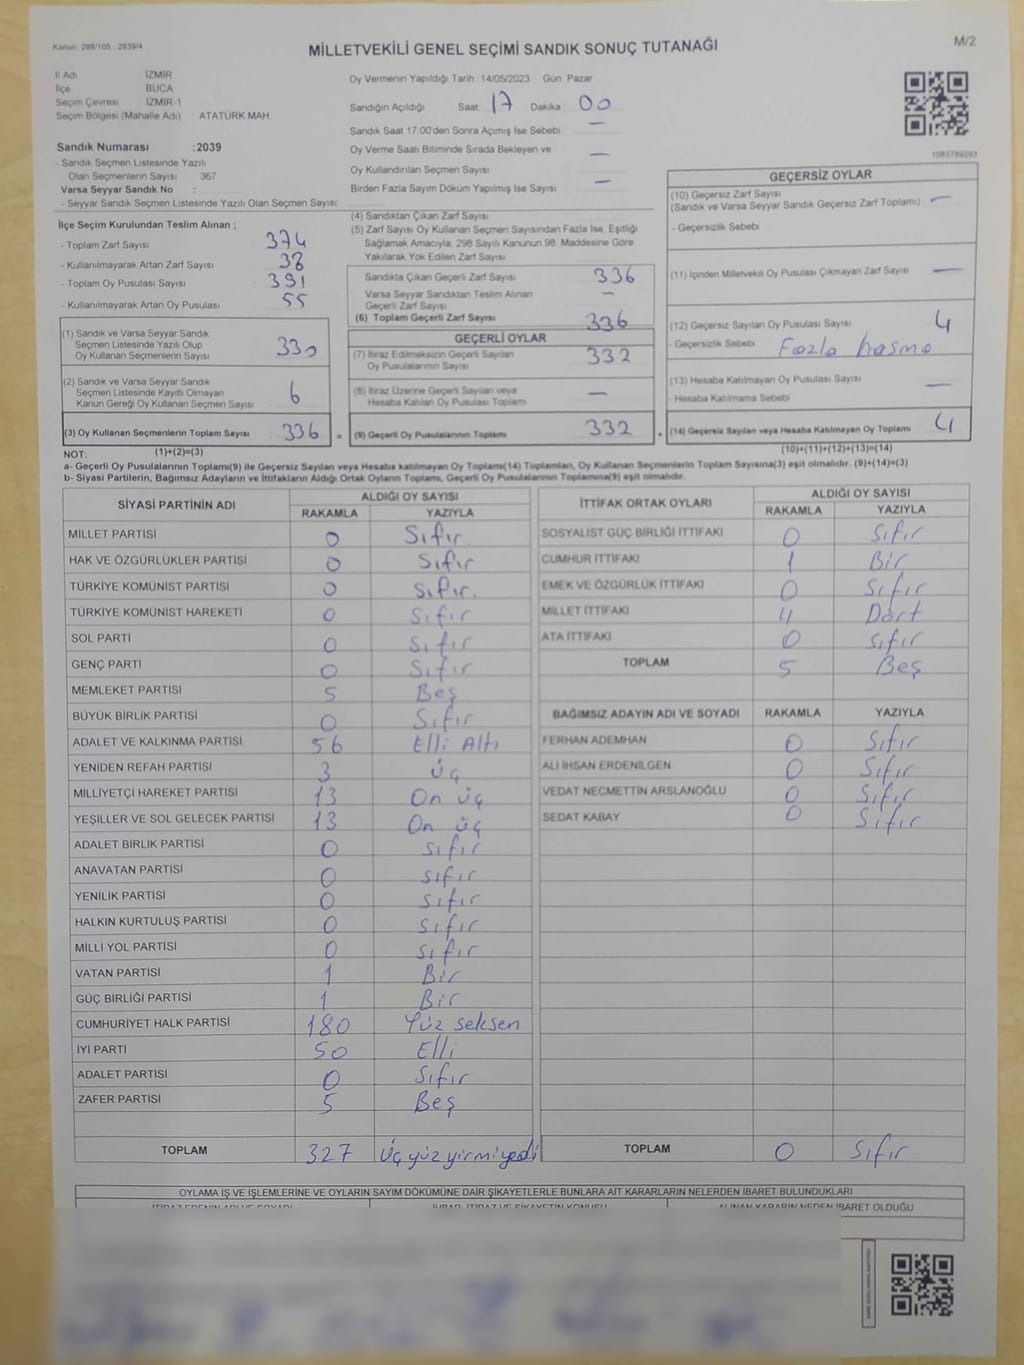 Kanun: 298/105 , 2839/4
MİLLETVEKİLİ GENEL SEÇİMİ SANDIK SONUÇ TUTANAĞI
M/2
İl Adı İZMİR
İlçe BUCA
Seçim Çevresi İZMİR-1
Seçim Bölgesi (Mahalle Adı) ATATÜRK MAH.
Sandık Numarası :2039
- Sandık Seçmen Listesinde Yazılı
Olan Seçmenlerin Sayısı 367
Varsa Seyyar Sandık No :
- Seyyar Sandık Seçmen Listesinde Yazılı Olan Seçmen Sayısı
Oy Vermenin Yapıldığı Tarih : 14/05/2023 Gün: Pazar
Sandığın Açıldığı Saat 17 Dakika 00
Sandık Saat 17:00'den Sonra Açımış İse Sebebi —
Oy Verme Saati Bitiminde Sırada Bekleyen ve
Oy Kullandırılan Seçmen Sayısı —
Birden Fazla Sayım Döküm Yapılmış İse Sayısı —
1083789293
İlçe Seçim Kurulundan Teslim Alınan ;
- Toplam Zarf Sayısı 374
- Kullanılmayarak Artan Zarf Sayısı 38
- Toplam Oy Pusulası Sayısı 391
- Kullanılmayarak Artan Oy Pusulası 55
(1) Sandık ve Varsa Seyyar Sandık
Seçmen Listesinde Yazılı Olup
Oy Kullanan Seçmenlerin Sayısı 330
(2) Sandık ve Varsa Seyyar Sandık
Seçmen Listesinde Kayıtlı Olmayan
Kanun Gereği Oy Kullanan Seçmen Sayısı 6
(3) Oy Kullanan Seçmenlerin Toplam Sayısı 336 =
(4) Sandıktan Çıkan Zarf Sayısı
(5) Zarf Sayısı Oy Kullanan Seçmen Sayısından Fazla İse, Eşitliği
Sağlamak Amacıyla, 298 Sayılı Kanunun 98. Maddesine Göre
Yakılarak Yok Edilen Zarf Sayısı
Sandıkta Çıkan Geçerli Zarf Sayısı 336
Varsa Seyyar Sandıktan Teslim Alınan
Geçerli Zarf Sayısı —
(6) Toplam Geçerli Zarf Sayısı 336
GEÇERLİ OYLAR
(7) İtiraz Edilmeksizin Geçerli Sayılan
Oy Pusulalarının Sayısı 332
(8) İtiraz Üzerine Geçerli Sayılan veya
Hesaba Katılan Oy Pusulası Toplamı —
(9) Geçerli Oy Pusulalarının Toplamı 332 +
GEÇERSİZ OYLAR
(10) Geçersiz Zarf Sayısı
(Sandık ve Varsa Seyyar Sandık Geçersiz Zarf Toplamı) —
- Geçersizlik Sebebi
(11) İçinden Milletvekili Oy Pusulası Çıkmayan Zarf Sayısı —
(12) Geçersiz Sayılan Oy Pusulası Sayısı 4
- Geçersizlik Sebebi Fazla basma
(13) Hesaba Katılmayan Oy Pusulası Sayısı —
- Hesaba Katılmama Sebebi
(14) Geçersiz Sayılan veya Hesaba Katılmayan Oy Toplamı 4
NOT: (1)+(2)=(3) (10)+(11)+(12)+(13)=(14)
a- Geçerli Oy Pusulalarının Toplamı(9) ile Geçersiz Sayılan veya Hesaba katılmayan Oy Toplamı(14) Toplamları, Oy Kullanan Seçmenlerin Toplam Sayısına(3) eşit olmalıdır. (9)+(14)=(3)
b- Siyasi Partilerin, Bağımsız Adayların ve İttifakların Aldığı Ortak Oyların Toplamı, Geçerli Oy Pusulalarının Toplamına(9) eşit olmalıdır.
SİYASİ PARTİNİN ADI ALDIĞI OY SAYISI
RAKAMLA YAZIYLA
MİLLET PARTİSİ 0 Sıfır
HAK VE ÖZGÜRLÜKLER PARTİSİ 0 Sıfır
TÜRKİYE KOMÜNİST PARTİSİ 0 Sıfır.
TÜRKİYE KOMÜNİST HAREKETİ 0 Sıfır
SOL PARTİ 0 Sıfır
GENÇ PARTİ 0 Sıfır
MEMLEKET PARTİSİ 5 Beş
BÜYÜK BİRLİK PARTİSİ 0 Sıfır
ADALET VE KALKINMA PARTİSİ 56 Elli Altı
YENİDEN REFAH PARTİSİ 3 üç
MİLLİYETÇİ HAREKET PARTİSİ 13 On üç
YEŞİLLER VE SOL GELECEK PARTİSİ 13 On üç
ADALET BİRLİK PARTİSİ 0 sıfır
ANAVATAN PARTİSİ 0 sıfır
YENİLİK PARTİSİ 0 sıfır
HALKIN KURTULUŞ PARTİSİ 0 sıfır
MİLLİ YOL PARTİSİ 0 sıfır
VATAN PARTİSİ 1 Bir
GÜÇ BİRLİĞİ PARTİSİ 1 Bir
CUMHURİYET HALK PARTİSİ 180 Yüz seksen
İYİ PARTİ 50 Elli
ADALET PARTİSİ 0 Sıfır
ZAFER PARTİSİ 5 Beş
TOPLAM 327 Üç yüz yirmi yedi
İTTİFAK ORTAK OYLARI ALDIĞI OY SAYISI
RAKAMLA YAZIYLA
SOSYALİST GÜÇ BİRLİĞİ İTTİFAKI 0 Sıfır
CUMHUR İTTİFAKI 1 Bir
EMEK VE ÖZGÜRLÜK İTTİFAKI 0 Sıfır
MİLLET İTTİFAKI 4 Dört
ATA İTTİFAKI 0 sıfır
TOPLAM 5 Beş
BAĞIMSIZ ADAYIN ADI VE SOYADI RAKAMLA YAZIYLA
FERHAN ADEMHAN 0 Sıfır
ALİ İHSAN ERDENİLGEN 0 Sıfır
VEDAT NECMETTİN ARSLANOĞLU 0 Sıfır
SEDAT KABAY 0 Sıfır
TOPLAM 0 Sıfır
OYLAMA İŞ VE İŞLEMLERİNE VE OYLARIN SAYIM DÖKÜMÜNE DAİR ŞİKAYETLERLE BUNLARA AİT KARARLARIN NELERDEN İBARET BULUNDUKLARI
İTİRAZ EDENİN ADI VE SOYADI İHBAR, İTİRAZ VE ŞİKAYETİN KONUSU ALINAN KARARIN NEDEN İBARET OLDUĞU